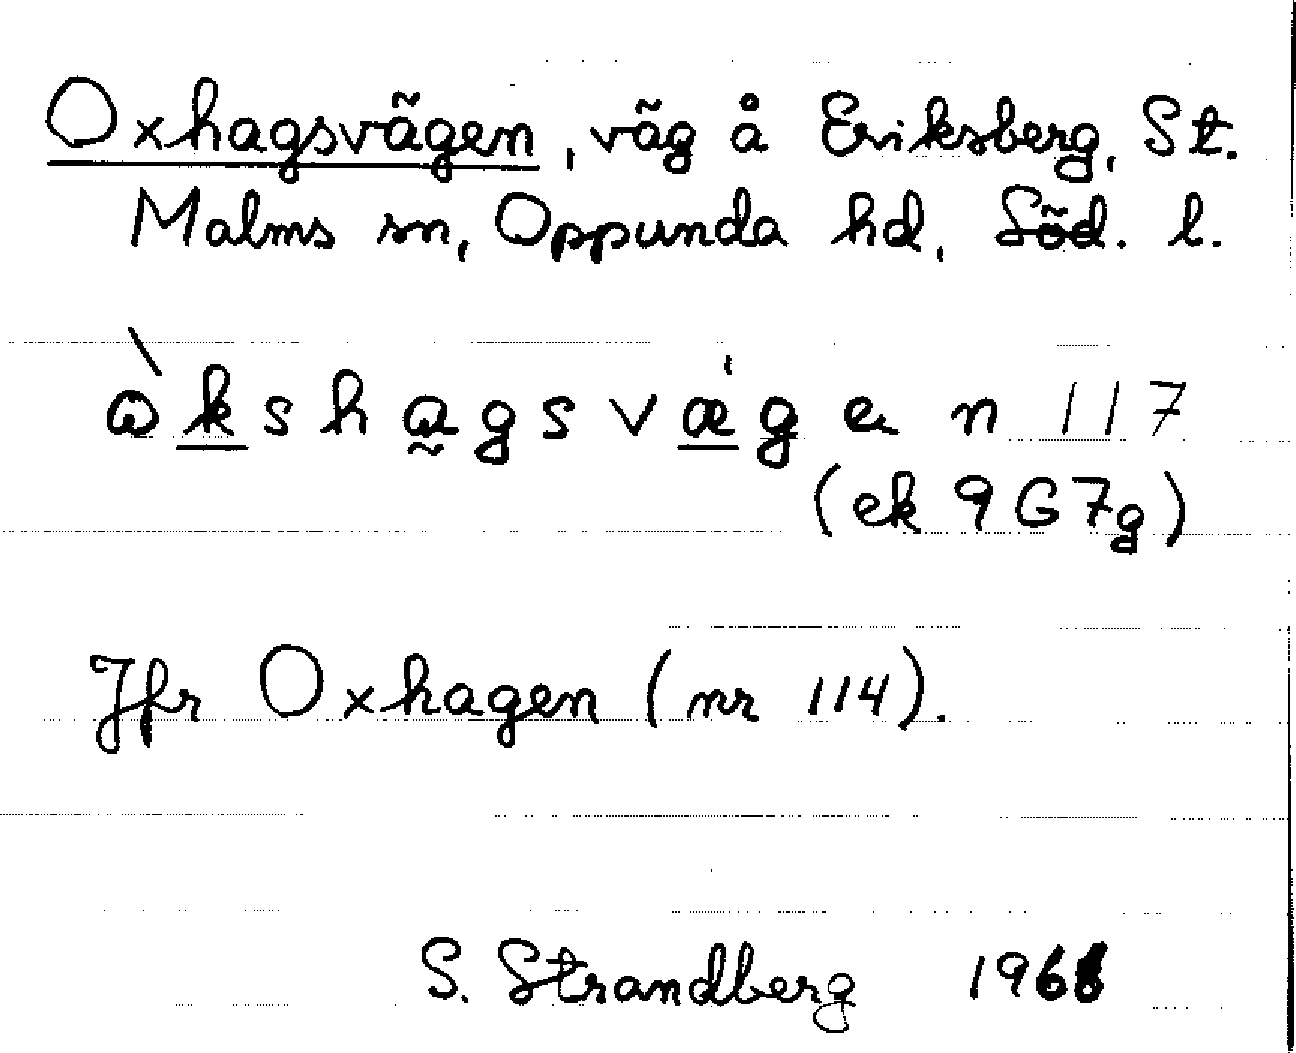 Oxhagsvägen, väg å Eriksberg, St.
Malms sn, Oppunda hd, Söd. l.
ò̀kshagsvǽgen 117
(ek 9G7g)
Jfr Oxhagen (nr 114).
S. Strandberg